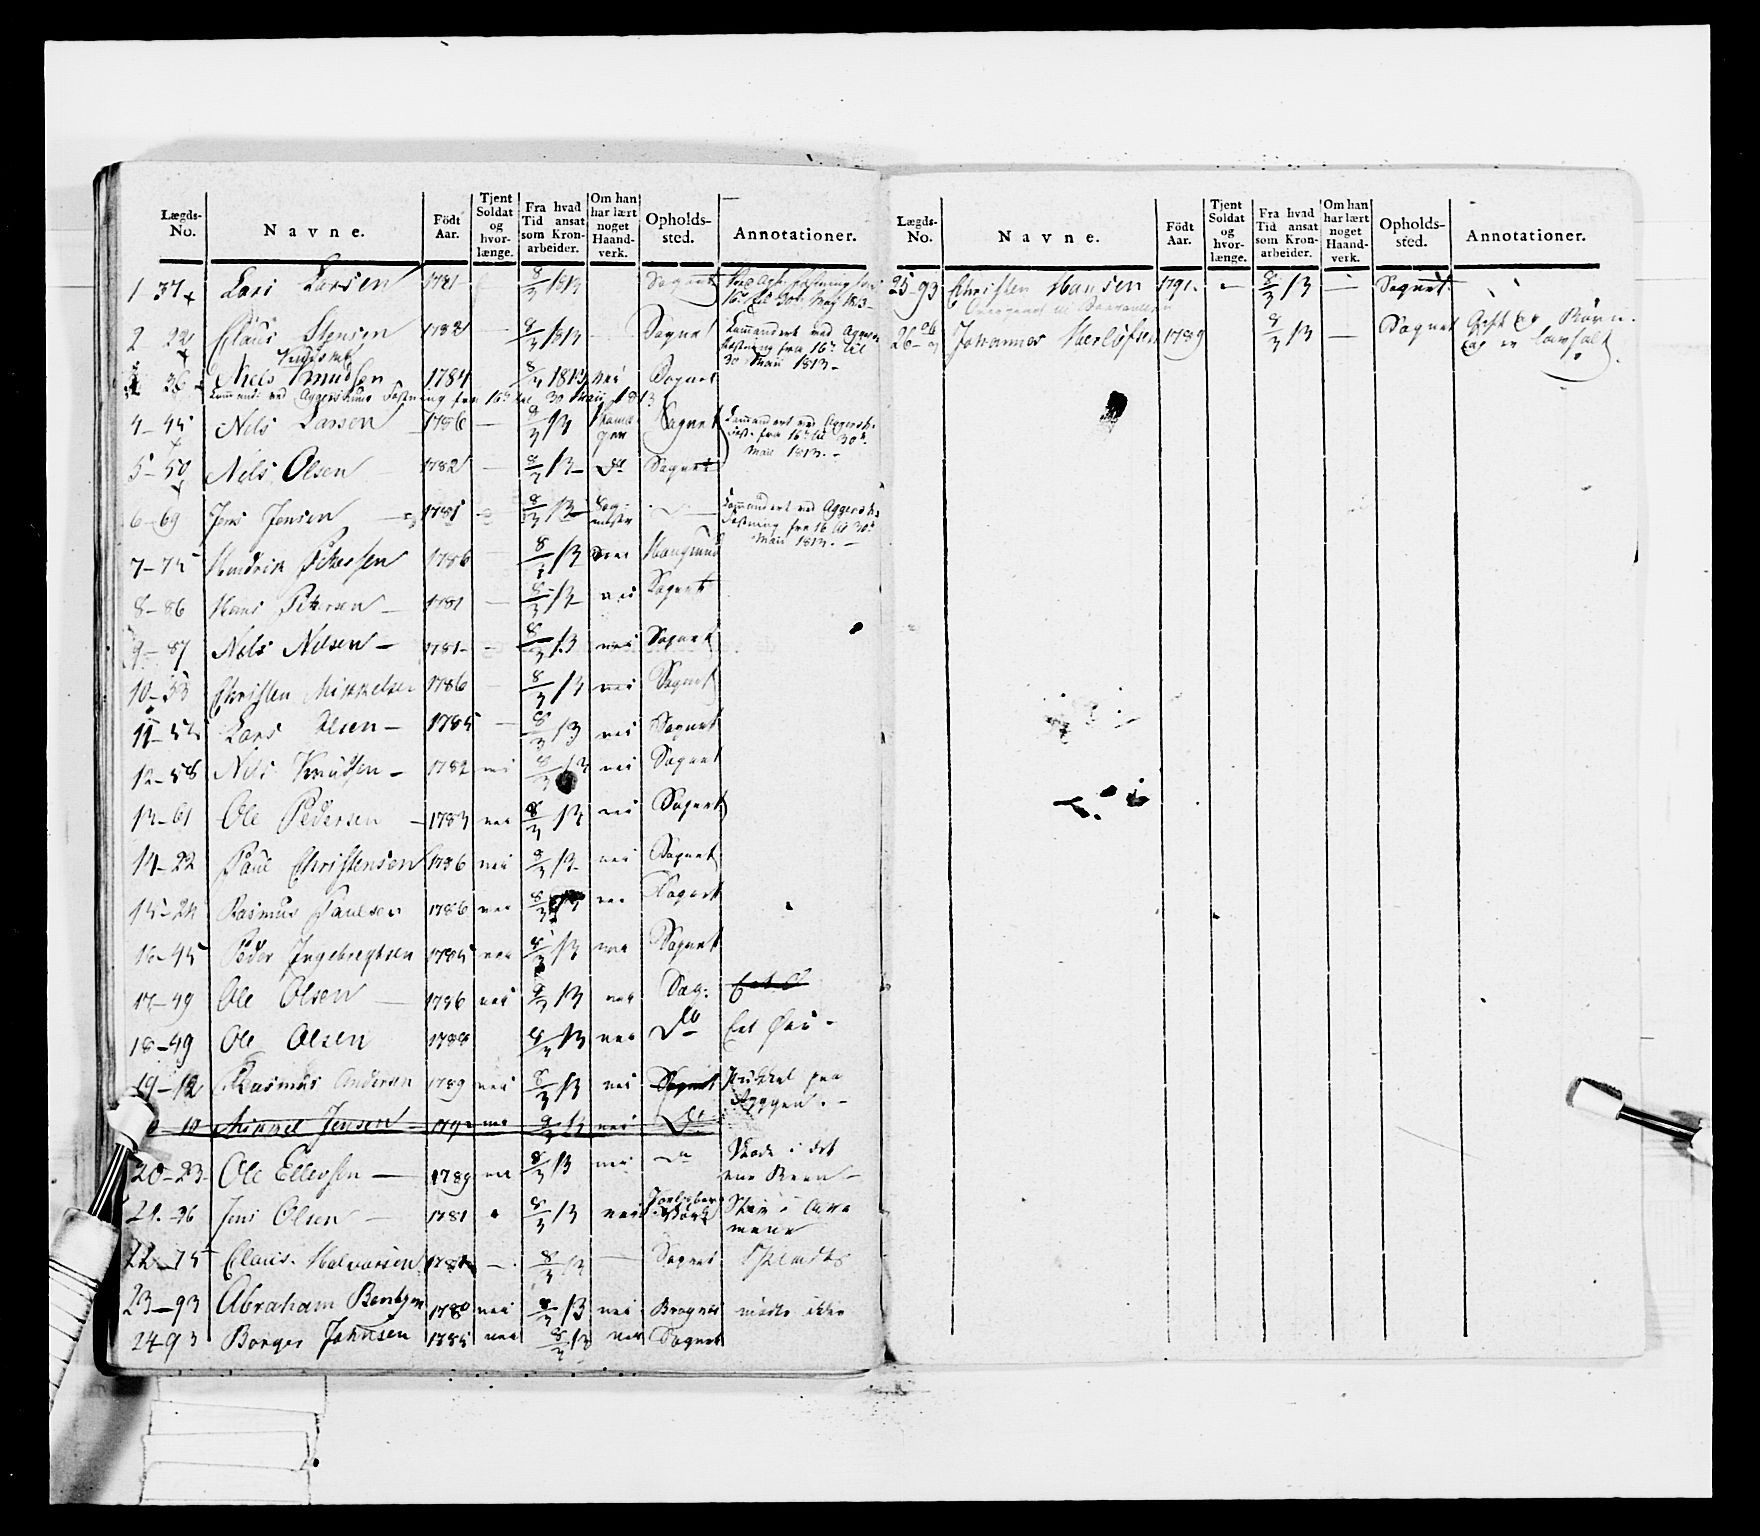 Lægds-No. Navne. Födt Aar. Tjent Soldat og hvor-længe. Fra hvad Tid ansat som Kron-arbeider. Om han har lært noget Haand-verk. Opholds-sted. Annotationer.
1 37 Lars Larsen 1781 8/3 1813 Sognet
16de til 30te Maij 1813
2 22 Claus Stensen 1782 — 8/3 1813 Sognet Commandert ved Aggers
Fæstning fra 16de til
30 Maii 1813.
36 Niels Knudsen 1784 8/3 1813 nei Sognet
Command: ved Aggershuus Fæstning fra 16de til 30 Maii 1813
4-45 Nils Larsen 1786 — 8/3 13 Sognet Commandert ved Aggersh.
Fæst. fra 16de til 30te
Maii 1813. -
5-50 Nils Olsen 1782 — 8/3 13 Do Sognet
6-69 Jens Jensen 1781 8/3 13 Commandert ved Aggersh.
Fæstning fra 16 til 30te
Maii 1813. -
7-75 Hendrik Petersen 1786 8/3 13
8-86 Hans Petersen — 1781 — 8/3 13 nei Sognet
9-87 Nils Nilsen — 1781 — 8/3 13 nei Sognet
10-33 Christen Mikkelsen 1786 — 8/3 13 nei Sognet
11-52 Lars Olsen — 1785 — 8/3 13 nei Sognet
12-58 Nils Knudsen — 1782 nei 8/3 13 nei Sognet
13-61 Ole Pedersen — 1783 nei 8/3 13 nei Sognet
14-22 Paul Christensen 1786 nei 8/3 13 nei Sognet
15-24 Rasmus Paulsen 1786 nei 8/3 13 nei Sognet
16-45 Peder Ingebregtsen 1785 nei 8/3 13 nei Sognet
17-49 Ole Olsen — 1786 nei 8/3 13 nei Sog:
18-49 Ole Olsen 1788 8/3 13 nei Do Eet Øie -
19-12 Rasmus Andersen 1789 nei 8/3 13 nei Sognet Pukkel paa
Ryggen. -
Mikkel Jensen nei 8/3 13 nei Do
20-23 Ole Ellevsen — 1789 nei 8/3 13 nei Do Skade i det
ene Been -
21-36 Jens Olsen — 1781 8/3 13 nei Jarlsberg
Værk Stiv i Ar-
mene
22-75 Claus Halvorsen 8/3 13 — Sognet
23-93 Abraham Bentzen 1780 nei 8/3 13 nei Bragnes mödte ikke
24-93 Borger Johnsen 1785 nei 8/3 13 nei Sognet
Lægds-No. Navne. Födt Aar. Tjent Soldat og hvor-længe. Fra hvad Tid ansat som Kron-arbeider. Om han har lært noget Haand-verk. Opholds-sted. Annotationer.
25-93 Christen Hansen 1791. — 8/3 13 — Sognet
26 Johannes 1789 8/3 13 — Sognet